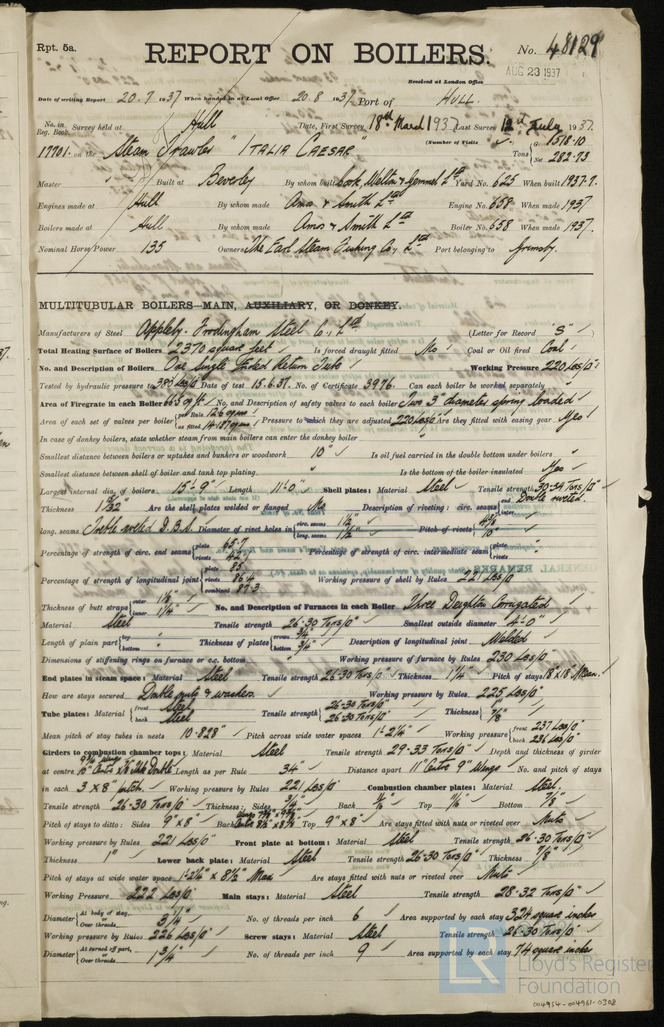 Rpt. 5a.
REPORT ON BOILERS.
No. 48129
Received at London Office
AUG 23 1937
Date of writing Report 20.7.1937 When handed in at Local Office 20.8.1937 Port of HULL.
No. in Reg. Book. Survey held at Hull Date, First Survey 18th March 1937 Last Survey 12th July 1937.
17701. on the Steam Trawler "ITALIA CAESAR" (Number of Visits ) Tons Gross 1518.10 Net 282.73
Master Built at Beverley By whom built Cook, Welton & Gemmell Ltd Yard No. 625 When built 1937-7.
Engines made at Hull By whom made Amos & Smith Ltd Engine No. 658 When made 1937
Boilers made at Hull By whom made Amos & Smith Ltd Boiler No. 658 When made 1937.
Nominal Horse Power 135 Owners The Earl Steam Fishing Co. Ltd Port belonging to Grimsby.
MULTITUBULAR BOILERS—MAIN, AUXILIARY, OR DONKEY.
Manufacturers of Steel Appleby-Frodingham Steel Co., Ltd (Letter for Record "S")
Total Heating Surface of Boilers 2370 square feet Is forced draught fitted No Coal or Oil fired Coal
No. and Description of Boilers One Single Ended Return Tube Working Pressure 220 Lbs/□"
Tested by hydraulic pressure to 380 Lbs/□" Date of test 15.6.37. No. of Certificate 3976. Can each boiler be worked separately
Area of Firegrate in each Boiler No. and Description of safety valves to each boiler Two 3" diameter spring loaded
Area of each set of valves per boiler per Rule 12.6 as fitted 14.137 Pressure to which they are adjusted 220 Lbs/□" Are they fitted with easing gear Yes
In case of donkey boilers, state whether steam from main boilers can enter the donkey boiler
Smallest distance between boilers or uptakes and bunkers or woodwork 10" Is oil fuel carried in the double bottom under boilers "
Smallest distance between shell of boiler and tank top plating " Is the bottom of the boiler insulated Yes
Largest internal dia. of boilers 15'-9" Length 11'-0" Shell plates: Material Steel Tensile strength 30-34 Tons/□"
Thickness Are the shell plates welded or flanged No Description of riveting: circ. seams end Double riveted. inter.
long. seams Treble riveted D.B.S. Diameter of rivet holes in circ. seams 1½" long. seams 1½" Pitch of rivets 10"
Percentage of strength of circ. end seams plate 65.7 rivets 42.1 Percentage of strength of circ. intermediate seam plate rivets
Percentage of strength of longitudinal joint plate 85. rivets 86.4 combined 87.3 Working pressure of shell by Rules 221 Lbs/□"
Thickness of butt straps outer 1⅛" inner 1¼" No. and Description of Furnaces in each Boiler Three Deighton Corrugated
Material Steel Tensile strength 26-30 Tons/□" Smallest outside diameter 4'-0"
Length of plain part top bottom Thickness of plates crown ¾" bottom ¾" Description of longitudinal joint Welded
Dimensions of stiffening rings on furnace or c.c. bottom Working pressure of furnace by Rules 230 Lbs/□"
End plates in steam space: Material Steel Tensile strength 26-30 Tons/□" Thickness 1¼" Pitch of stays 18" x 18" Mean.
How are stays secured Double nuts & washers. Working pressure by Rules 225 Lbs/□"
Tube plates: Material front Steel back Steel Tensile strength 26-30 Tons/□" 26-30 Tons/□" Thickness ⅞"
Mean pitch of stay tubes in nests 10.828" Pitch across wide water spaces 1'-2¼" Working pressure front 237 Lbs/□" back 236 Lbs/□"
Girders to combustion chamber tops: Material Steel Tensile strength 29-33 Tons/□" Depth and thickness of girder
at centre Double Length as per Rule 34" Distance apart 11" Centre 9" Wings No. and pitch of stays
in each 3 x 8" pitch. Working pressure by Rules 221 Lbs/□" Combustion chamber plates: Material Steel
Tensile strength 26-30 Tons/□" Thickness: Sides Back Top Bottom ⅞"
Pitch of stays to ditto: Sides 9" x 8" Back Top 9" x 8" Are stays fitted with nuts or riveted over Nuts
Working pressure by Rules 221 Lbs/□" Front plate at bottom: Material Steel Tensile strength 26-30 Tons/□"
Thickness 1" Lower back plate: Material Steel Tensile strength 26-30 Tons/□" Thickness ⅞"
Pitch of stays at wide water space 1'-2¼" x 8½" Max Are stays fitted with nuts or riveted over Nuts
Working Pressure 222 Lbs/□" Main stays: Material Steel Tensile strength 28-32 Tons/□"
Diameter At body of stay, or Over threads 3¼" No. of threads per inch 6 Area supported by each stay 324 square inches
Working pressure by Rules 226 Lbs/□" Screw stays: Material Steel Tensile strength 26-30 Tons/□"
Diameter At turned off part, or Over threads 1¾" No. of threads per inch 9 Area supported by each stay 74 square inches
Lloyd's Register
Foundation
004954-004961-0308